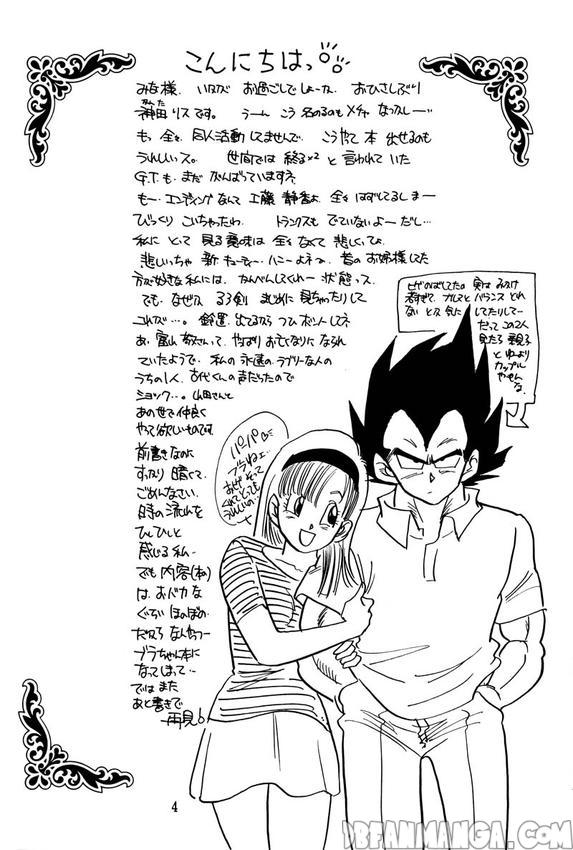 こんにちは。
みな様、いかが お過ごしでしょーか。おひさしぶり
神田リスです。うーん こう 名のるのも メチャ なつかしー…
かんた
も、全々、同人活動してませんで、こうやって 本 出せるのも
うれしいっス。世間では 終る×2 と 言われて いた
G.T.も、まだ がんばっていますネ
もー、エンディング なんて 工藤 静香よ、全々 はずしてるしまー
びっくり こいちゃったわ。トランクスも でていないよーだし…
私に とって 見る意味は 全々 なくて 悲しいってよ。
悲しいっちゃ 新 キューティー・ハニーよネっ、昔の お嬢様してた
方が好きな 私には、かんべんしてくれー 状態っス。
でも、なぜか るろ剣 まじめに 見ちゃったりして
これが…。鈴置、出てるから つい ホットしてネ
あ、富山 敬さんって、やっぱり お亡くなりに なられ
ていたようで、私の 永遠の ラブリーな人の
うちの1人、古代くんの 声だったので
ショック…。山田さんと
あの世で 仲良く
やって 欲しいものです
前書きなのに
すっかり 暗くて、
ごめんなさい。
時の流れを
ひしひしと
感じる 私…
でも 内容(私)
は、おバカな
ぐらい ほのぼの、
だから なんかっつー
ブラちゃん本に
なってしまって…
では また
あと書きで
再見
パパ
ブラねェ…
ヒゲのばしてたの 実は みかけ
若すぎて、ブルマと バランス とれ
ない とか 気に してたりして…
だって この2人
見たら 親子
と ゆーより
カップル
やもんな
4
DBFANMANGA.COM